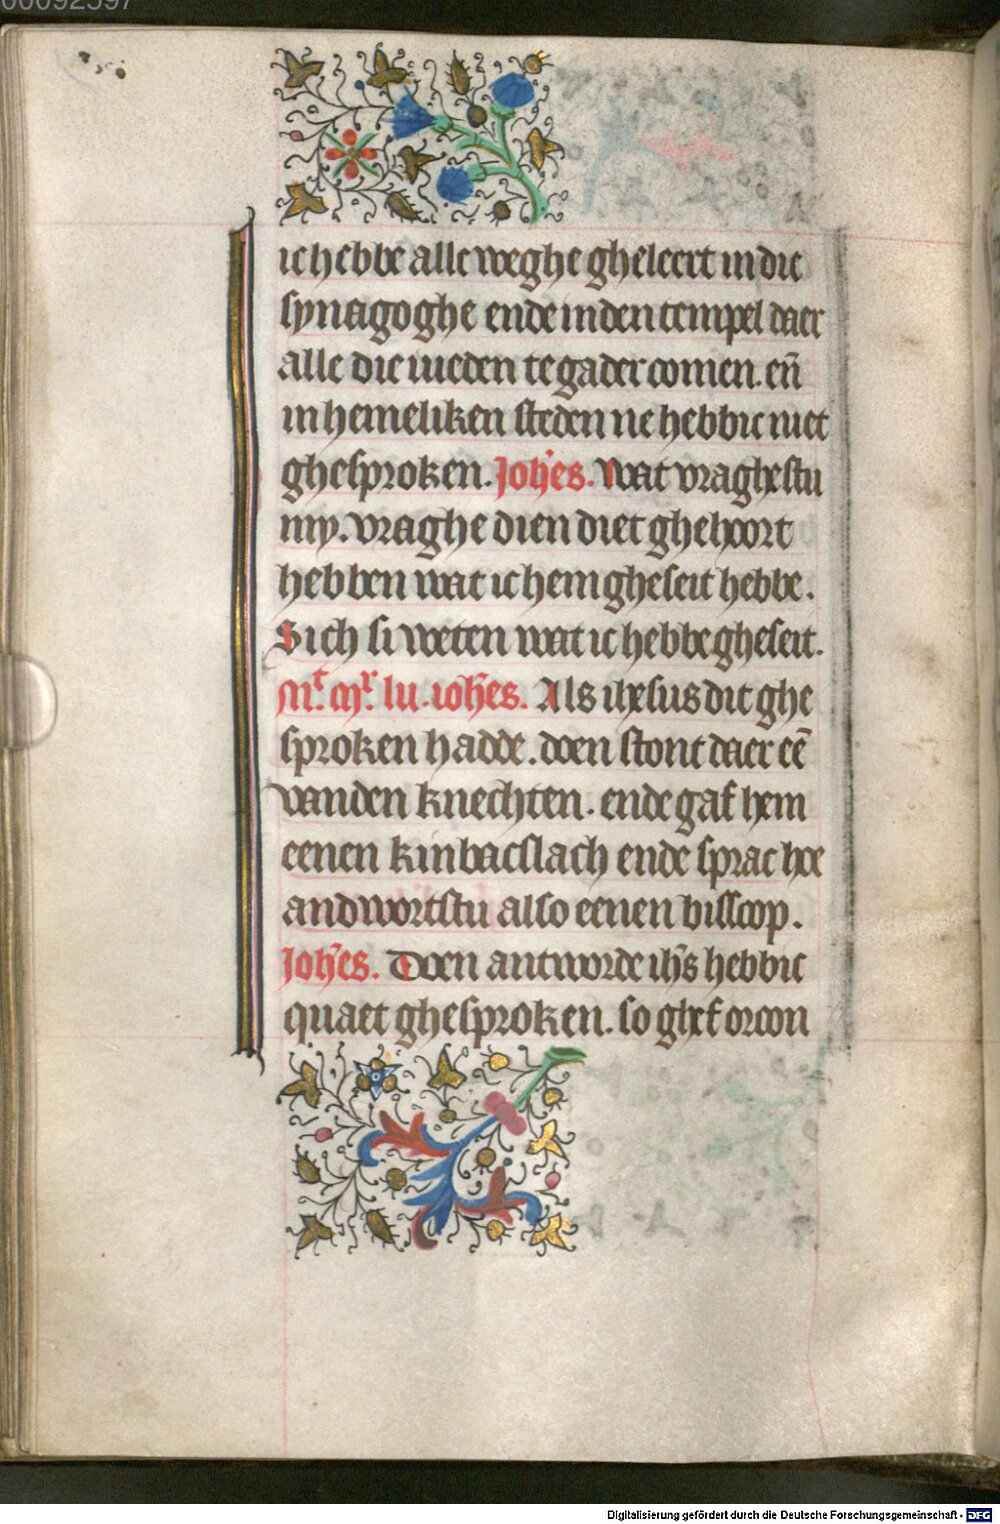 00092597
ic hebbe alle weghe gheleert in die
synagoghe ende in den tempel daer
alle die iueden te gader comen. en̄
in hemeliken steden ne hebbic niet
ghesproken. Joh̄es. Wat vraghestu
my. vraghe dien diet ghehoort
hebben wat ic hem gheseit hebbe.
Sich si weten wat ic hebbe gheseit.
Mᵗ. Mʳ. lu. ioh̄es. Als ihesus dit ghe
sproken hadde. doen stont daer eē
vanden knechten. ende gaf hem
eenen kinbacslach ende sprac hoe
andwortstu also eenen bisscop.
Joh̄es. Doen antworde ih̄s hebbic
quaet ghesproken. so ghef orcon
Digitalisierung gefördert durch die Deutsche Forschungsgemeinschaft - DFG